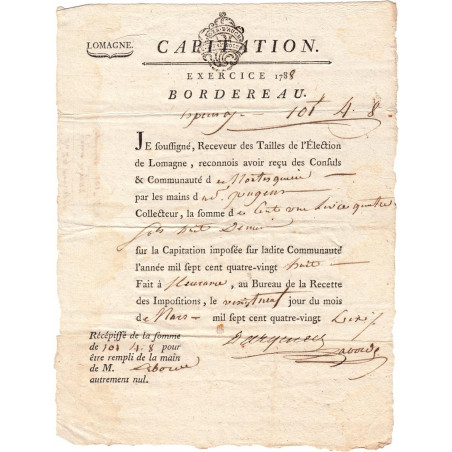 LOMAGNE.
CAPITATION.
EXERCICE 1788
BORDEREAU.
101 4. 8.
JE soussigné, Receveur des Tailles de l'Élection
de Lomagne, reconnois avoir reçu des Consuls
& Communauté d
par les mains d
Collecteur, la somme de Cent une Livre quatre
sols huit Denier
sur la Capitation imposée sur ladite Communauté
l'année mil sept cent quatre-vingt huit
Fait à fleurance, au Bureau de la Recette
des Impositions, le vingt neuf jour du mois
de Mars mil sept cent quatre-vingt
Récépissé de la somme
de 101 4 8 pour
être rempli de la main
de M.
autrement nul.